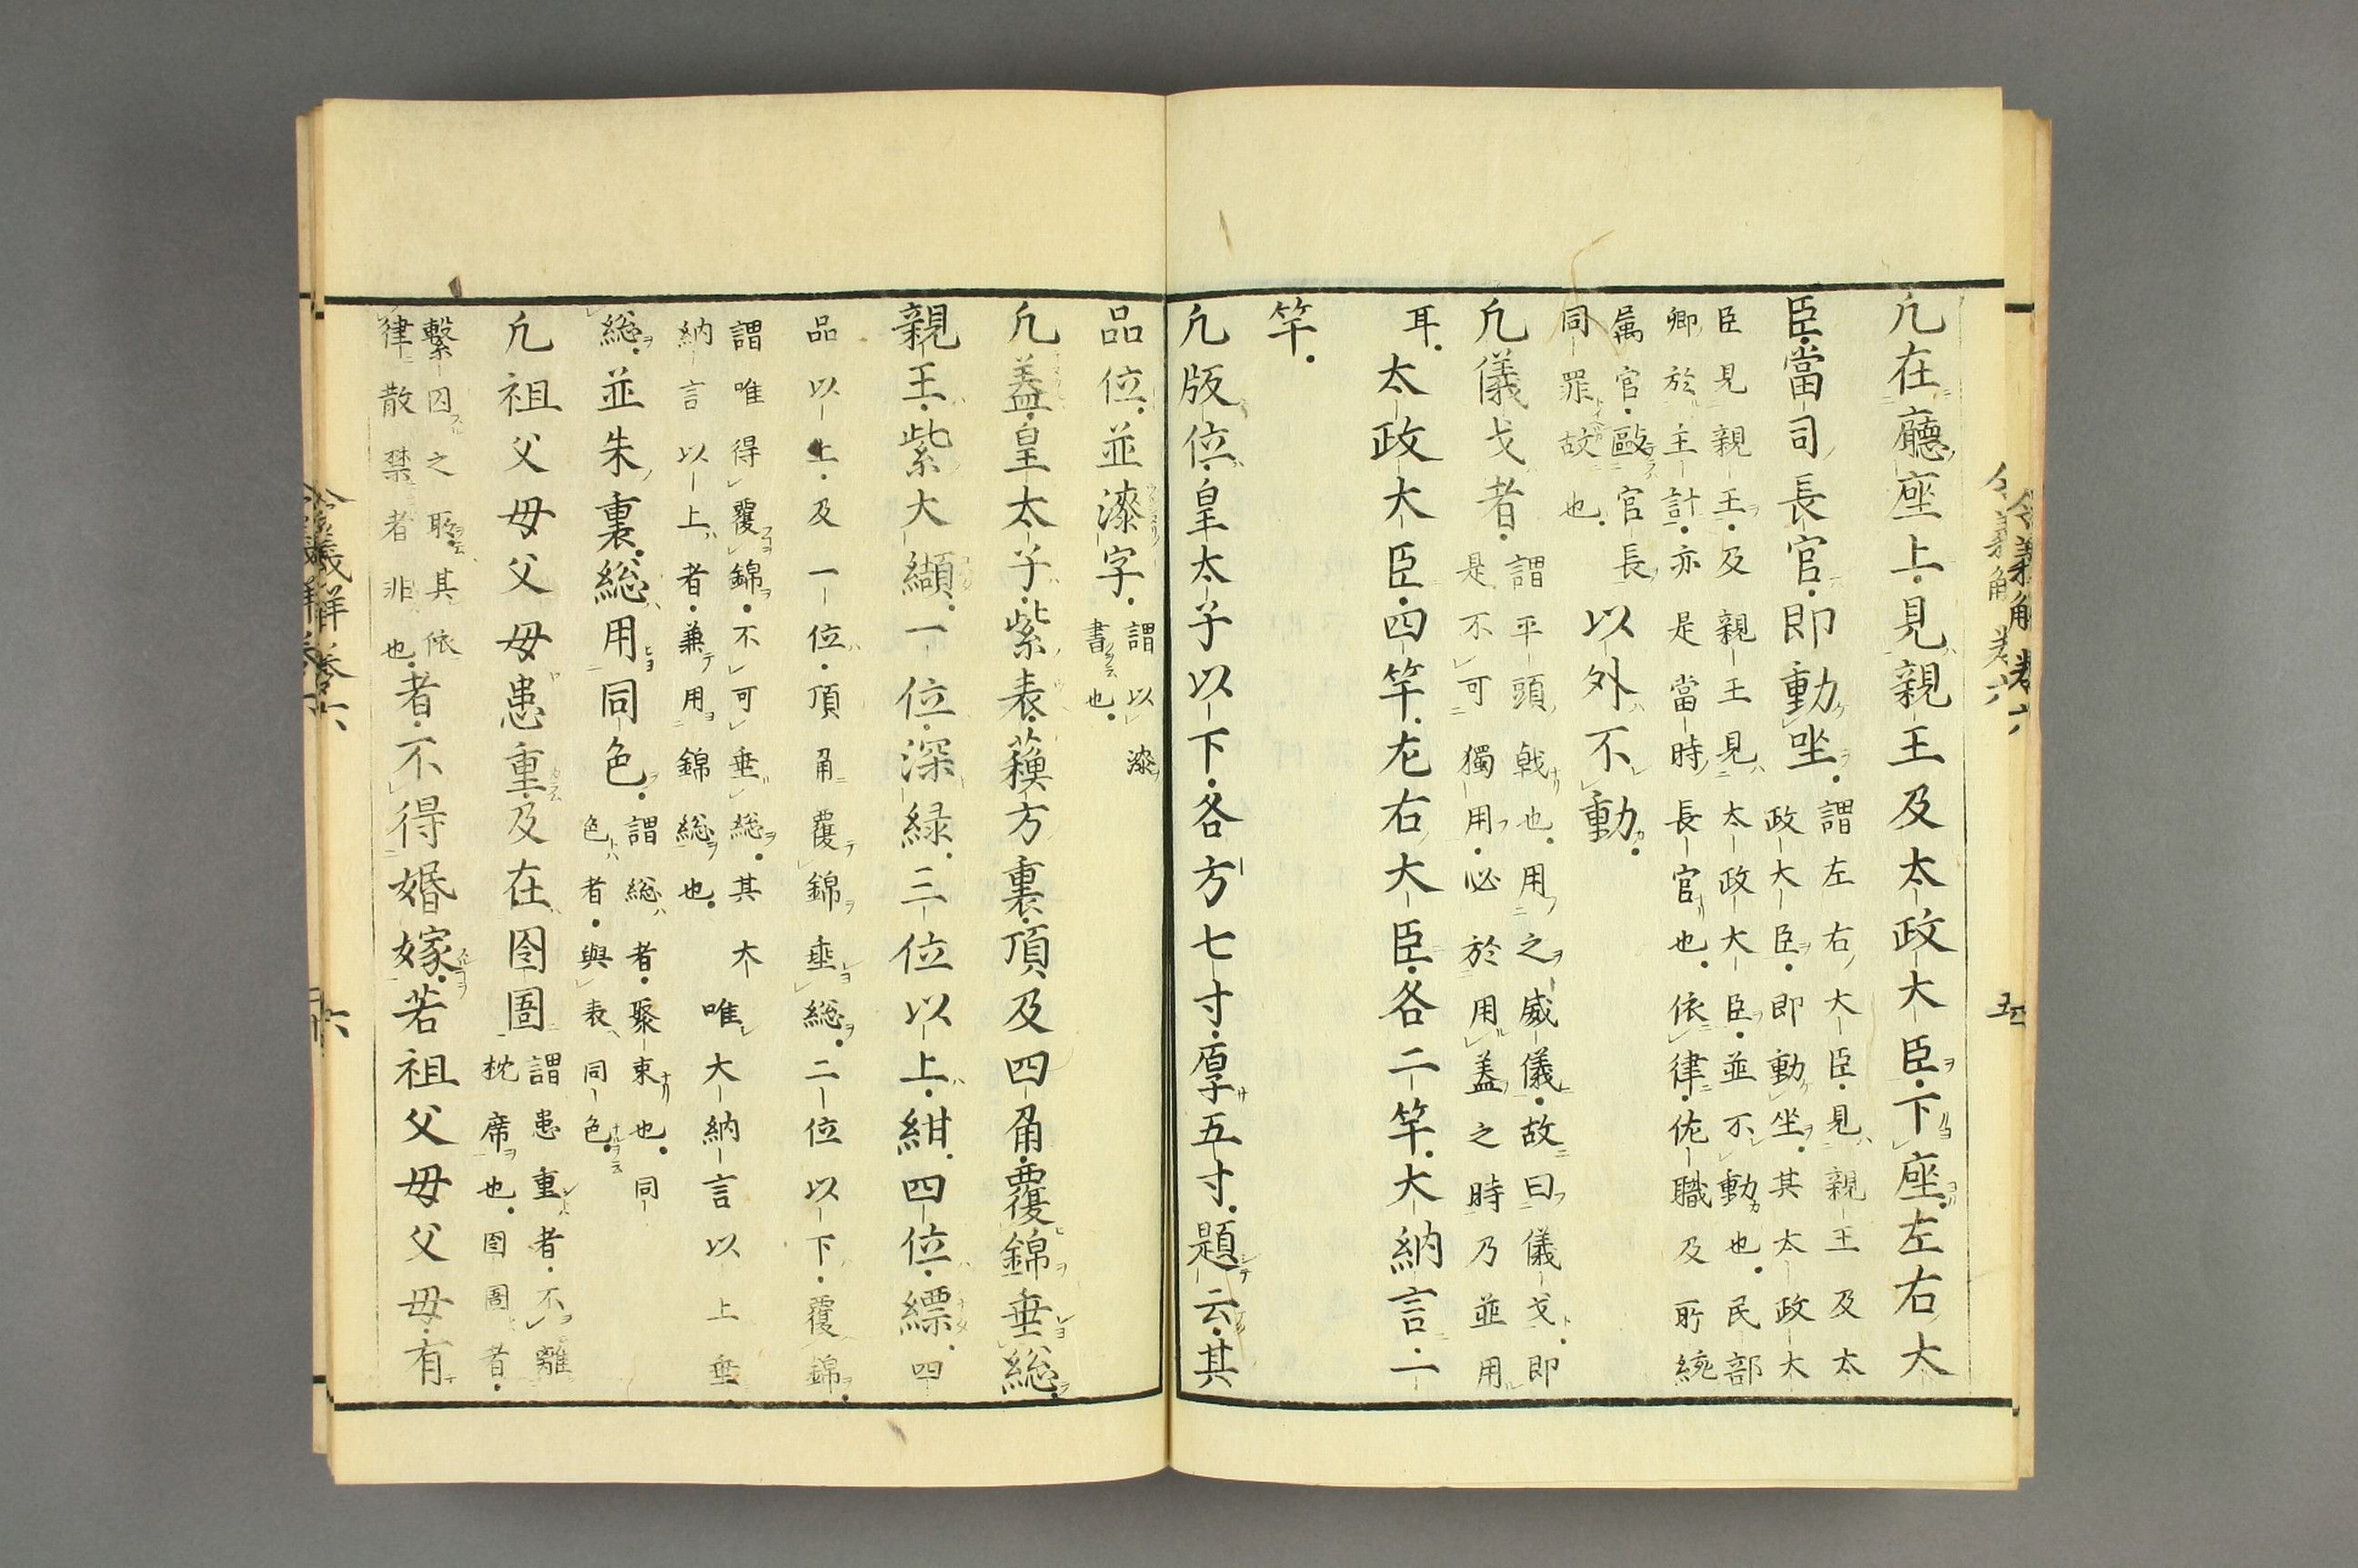 凡在廳座上。見親王及太政大臣。下座。左右大
臣。當司長官。即動坐。謂左右大臣。見親王及太
政大臣。即動坐。其太政大
臣見親王。及親王見太政大臣。並不動也。民部
卿於主計。亦是當時長官也。依律。佐職及所統
属官。毆官長
同罪故也。以外不動。
凡儀戈者。謂平頭戟也。用之威儀。故曰儀戈。即
是不可獨用。必於用蓋之時乃並用
耳。太政大臣。四竿。左右大臣。各二竿。大納言。一
竿。
凡版位。皇太子以下。各方七寸。厚五寸。題云。其
品位。並漆字。謂以漆
書也。
凡蓋。皇太子。紫表。蘓方裏。頂及四角。覆錦垂総。
親王。紫大纈。一位。深緑。三位以上。紺。四位。縹。四
品以上。及一位。頂角覆錦垂総。二位以下。覆錦。
謂唯得覆錦。不可垂総。其大
納言以上者。兼用錦総也。唯大納言以上垂
総。並朱裏。総用同色。謂総者。聚束也。同
色者。與表同色。
凡祖父母父母患重。及在囹圄謂患重者。不離
枕席也。囹圄者。
繫囚之耶。其依
律散禁者非也。者。不得婚嫁。若祖父母父母。有
令義解卷六
五
令義解卷六
六